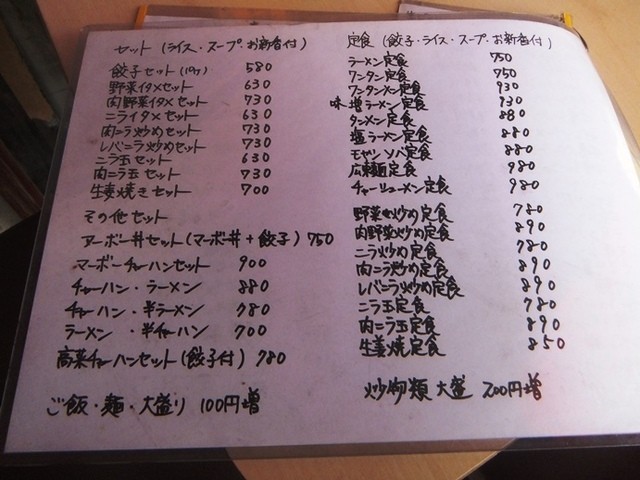 セット (ライス・スープ・お新香付)
餃子セット(10ヶ) 580
野菜イタメセット 630
肉野菜イタメセット 730
ニライタメセット 630
肉ニラ炒めセット 730
レバニラ炒めセット 730
ニラ玉セット 630
肉ニラ玉セット 730
生姜焼きセット 700
その他セット
マーボー丼セット(マーボ丼+餃子) 750
マーボーチャーハンセット 900
チャーハン・ラーメン 880
チャーハン・半ラーメン 780
ラーメン・半チャーハン 700
高菜チャーハンセット(餃子付) 780
ご飯・麺・大盛り 100円増
定食 (餃子・ライス・スープ・お新香付)
ラーメン定食 750
ワンタン定食 750
ワンタンメン定食 930
味増ラーメン定食 930
タンメン定食 880
塩ラーメン定食 880
モヤシソバ定食 880
広東麺定食 980
チャーシューメン定食 980
野菜炒め定食 780
肉野菜炒め定食 890
ニラ炒め定食 780
肉ニラ炒め定食 890
レバニラ炒め定食 890
ニラ玉定食 780
肉ニラ玉定食 890
生姜焼定食 850
炒物類 大盛 200円増